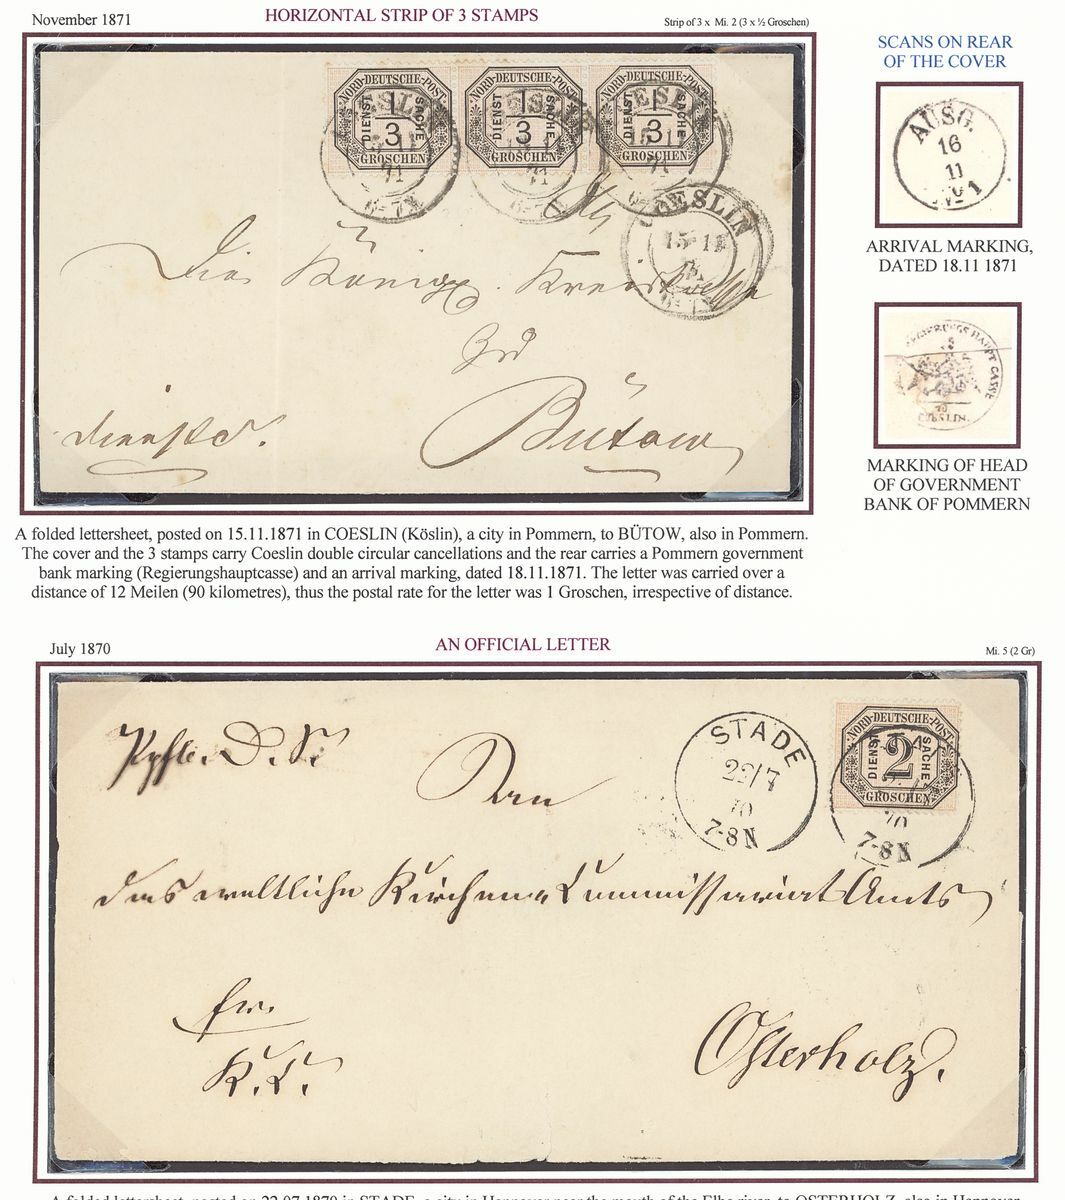 November 1871
HORIZONTAL STRIP OF 3 STAMPS
Strip of 3 x Mi. 2 (3 x ½ Groschen)
NORD-DEUTSCHE-POST
DIENST 1/3 SACHE
GROSCHEN
NORD-DEUTSCHE-POST
DIENST 1/3 SACHE
GROSCHEN
NORD-DEUTSCHE-POST
DIENST 1/3 SACHE
GROSCHEN
COESLIN
15 11
Die Königl. Kreiskasse
Zu
Bütow
SCANS ON REAR
OF THE COVER
AUSG.
16
11
No 1
ARRIVAL MARKING,
DATED 18.11 1871
REGIERUNGS HAUPT CASSE
COESLIN.
MARKING OF HEAD
OF GOVERNMENT
BANK OF POMMERN
A folded lettersheet, posted on 15.11.1871 in COESLIN (Köslin), a city in Pommern, to BÜTOW, also in Pommern.
The cover and the 3 stamps carry Coeslin double circular cancellations and the rear carries a Pommern government
bank marking (Regierungshauptcasse) and an arrival marking, dated 18.11.1871. The letter was carried over a
distance of 12 Meilen (90 kilometres), thus the postal rate for the letter was 1 Groschen, irrespective of distance.
July 1870
AN OFFICIAL LETTER
Mi. 5 (2 Gr)
D. S.
An
STADE
22/7
70
7-8N
NORD-DEUTSCHE-POST
DIENST 2 SACHE
GROSCHEN
70
7-8N
das weltliche Kirchen-Commissariat Amts
fr.
K. C.
Osterholz.
A folded lettersheet, posted on 22.07.1870 in STADE, a city in Hannover near the mouth of the Elbe river, to OSTERHOLZ, also in Hannover.